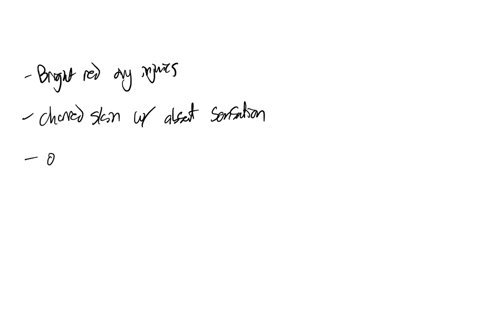 - Bright red dry injuries
- charred skin w/ absent sensation
- o